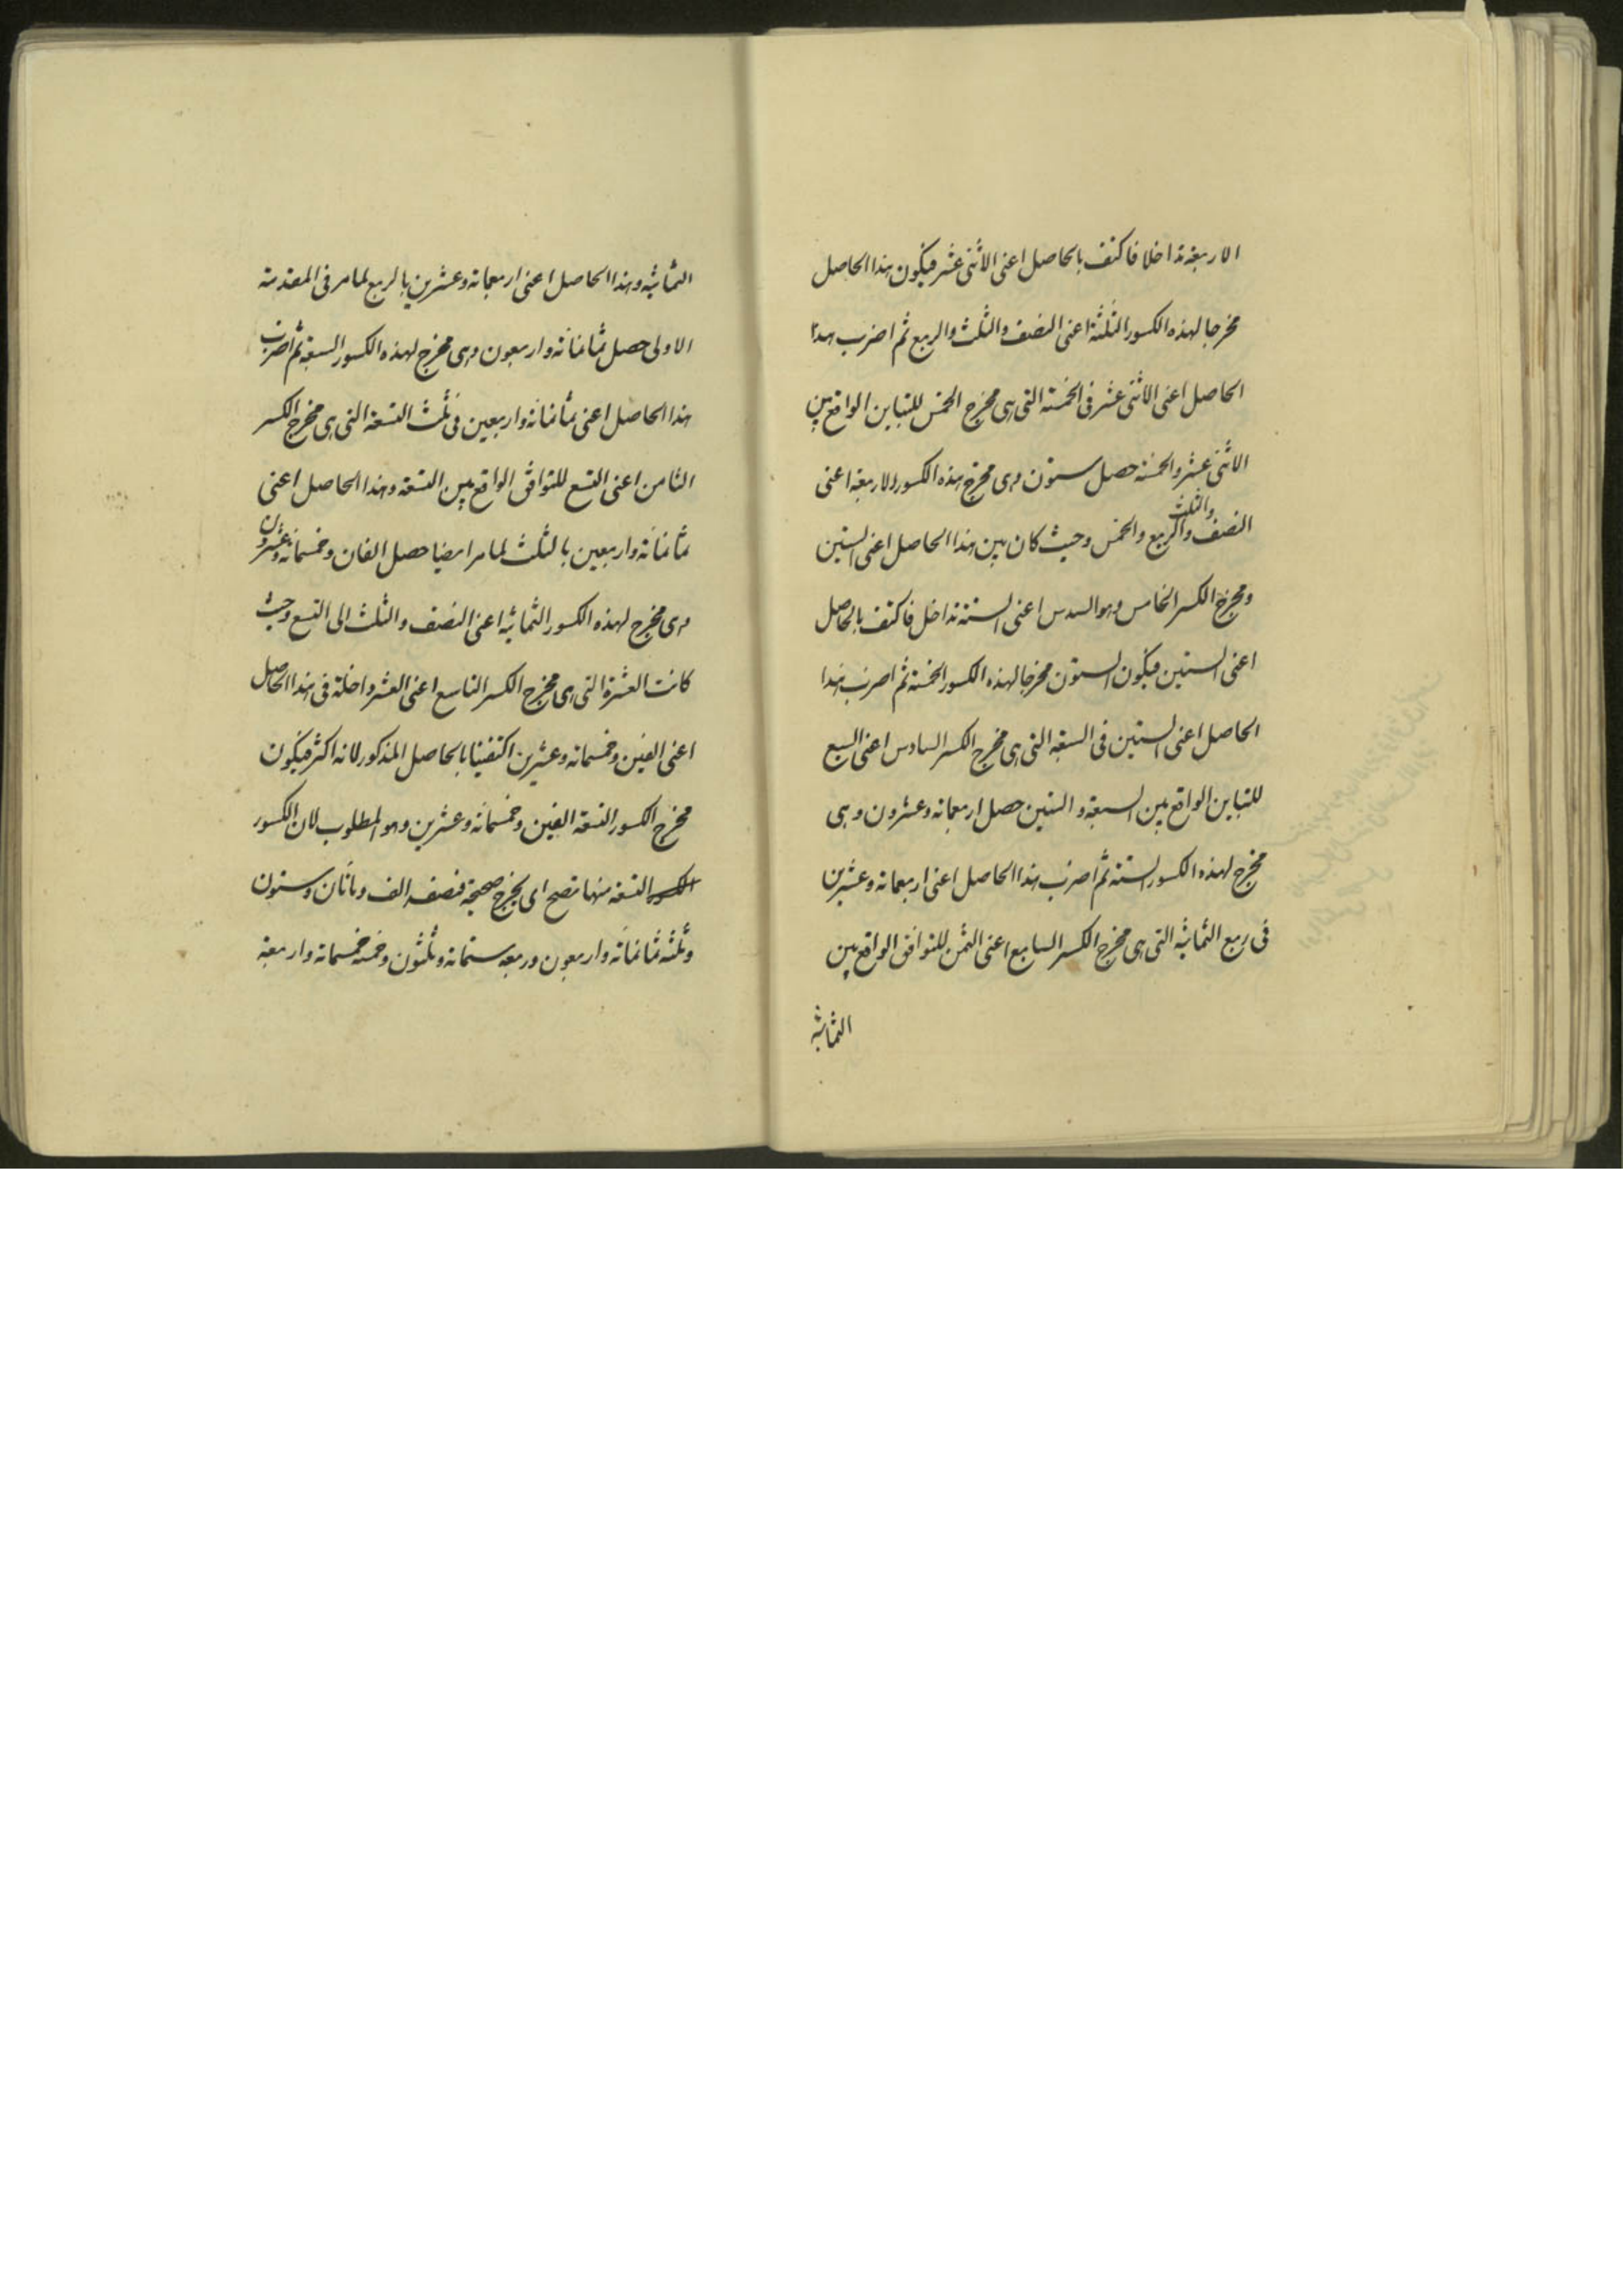 الاربعة تداخلا فاكتف بالحاصل اعنى الاثنى عشر فيكون هذا الحاصل
مخرجا لهذه الكسور الثلثة اعنى النصف والثلث والربع ثم اضرب هذا
الحاصل اعنى الاثنى عشر فى الخمسة التى هى مخرج الخمس للتباين الواقع بين
الاثنى عشر والخمسة حصل ستون وهى مخرج هذه الكسور الاربعة اعنى
والثلث
النصف والربع والخمس وحيث كان بين هذا الحاصل اعنى الستين
ومخرج الكسر الخامس وهو السدس اعنى الستة تداخل فاكتف بالحاصل
اعنى الستين فيكون الستون مخرجا لهذه الكسور الخمسة ثم اضرب هذا
الحاصل اعنى الستين فى السبعة التى هى مخرج الكسر السادس اعنى السبع
للتباين الواقع بين السبعة والستين حصل اربعمائة وعشرون وهى
مخرج لهذه الكسور الستة ثم اضرب هذا الحاصل اعنى اربعمائة وعشرين
فى ربع الثمانية التى هى مخرج الكسر السابع اعنى الثمن للتوافق الواقع بين
الثمانية
الثمانية وهذا الحاصل اعنى اربعمائة وعشرين بالربع لما مر فى المقدمة
الاولى حصل ثمانمائة واربعون وهى مخرج لهذه الكسور السبعة ثم اضرب
هذا الحاصل اعنى ثمانمائة واربعين فى ثلث التسعة التى هى مخرج الكسر
الثامن اعنى التسع للتوافق الواقع بين التسعة وهذا الحاصل اعنى
ثمانمائة واربعين بالثلث لما مر ايضا حصل الفان وخمسمائة وعشرون
وهى مخرج لهذه الكسور الثمانية اعنى النصف والثلث الى التسع وحيث
كانت العشرة التى هى مخرج الكسر التاسع اعنى العشر داخلة فى هذا الحاصل
اعنى الفين وخمسمائة وعشرين اكتفينا بالحاصل المذكور لانه اكثر فيكون
مخرج الكسور التسعة الفين وخمسمائة وعشرين وهو المطلوب لان الكسور
التسعة منها تصح اى يخرج صحيحة فنصفه الف ومائتان وستون
وثلثه ثمانمائة واربعون وربعه ستمائة وثلثون وخمسه خمسمائة واربعة